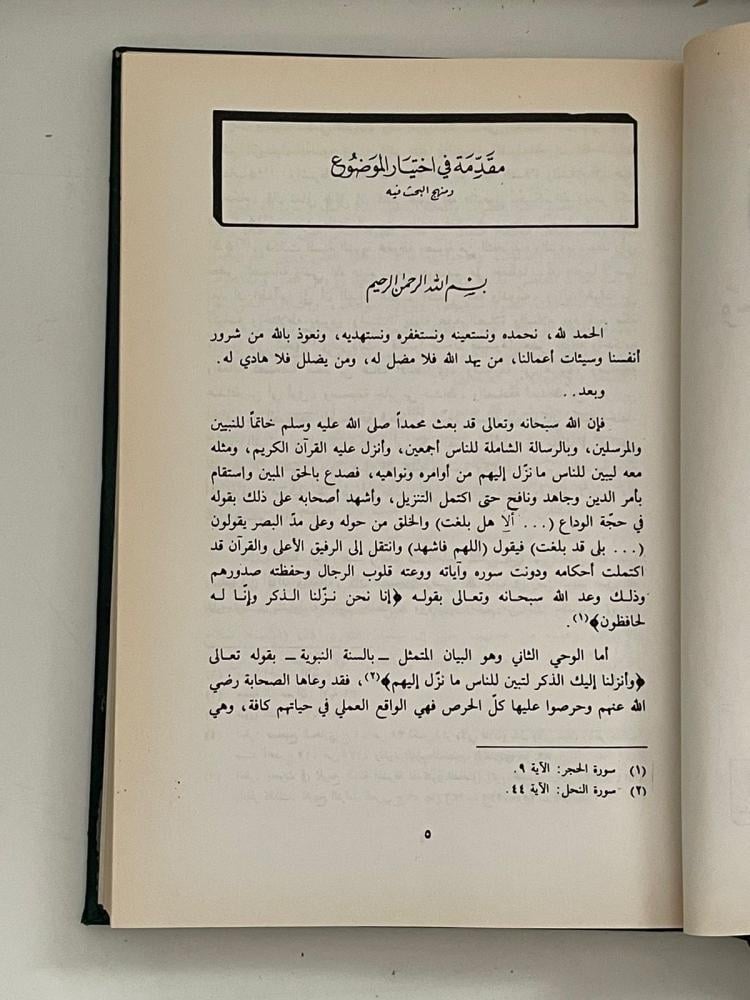 مقَدِّمَة في اختيَار الموَضوُع
ومنهج البحث فيه
بسم الله الرحمن الرحيم
الحمد لله، نحمده ونستعينه ونستغفره ونستهديه، ونعوذ بالله من شرور
أنفسنا وسيئات أعمالنا، من يهد الله فلا مضل له، ومن يضلل فلا هادي له.
وبعد..
فإن الله سبحانه وتعالى قد بعث محمداً صلى الله عليه وسلم خاتماً للنبيين
والمرسلين، وبالرسالة الشاملة للناس أجمعين، وأنزل عليه القرآن الكريم، ومثله
معه ليبين للناس ما نزّل إليهم من أوامره ونواهيه، فصدع بالحق المبين واستقام
بأمر الدين وجاهد ونافح حتى اكتمل التنزيل، وأشهد أصحابه على ذلك بقوله
في حجّة الوداع (... ألا هل بلغت) والخلق من حوله وعلى مدّ البصر يقولون
(... بلى قد بلغت) فيقول (اللهم فاشهد) وانتقل إلى الرفيق الأعلى والقرآن قد
اكتملت أحكامه ودونت سوره وآياته ووعته قلوب الرجال وحفظته صدورهم
وذلك وعد الله سبحانه وتعالى بقوله ﴿إنا نحن نزّلنا الذكر وإنّا له
لحافظون﴾(١).
أما الوحي الثاني وهو البيان المتمثل ــ بالسنة النبوية ــ بقوله تعالى
﴿وأنزلنا إليك الذكر لتبين للناس ما نزّل إليهم﴾(٢)، فقد وعاها الصحابة رضي
الله عنهم وحرصوا عليها كلّ الحرص فهي الواقع العملي في حياتهم كافة، وهي
(١) سورة الحجر: الآية ٩.
(٢) سورة النحل: الآية ٤٤.
٥